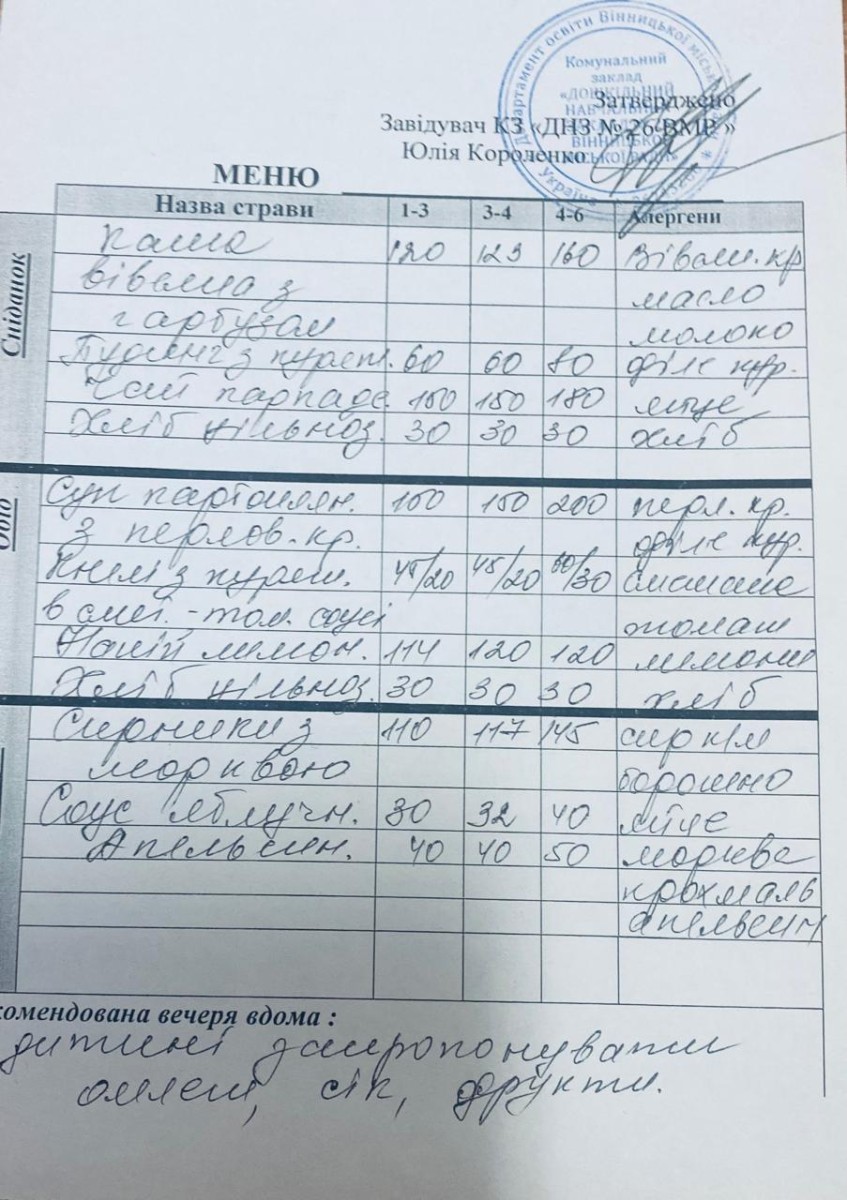 Департамент освіти Вінницької міської
Комунальний
заклад
«ДОШКІЛЬНИЙ
НАВЧАЛЬНИЙ
ВІННИЦЬКОЇ
МІСЬКОЇ РАДИ»
Україна
Затверджено
Завідувач КЗ «ДНЗ № 26 ВМР »
Юлія Короленко
МЕНЮ
Назва страви 1-3 3-4 4-6 Алергени
Сніданок
Каша 120 123 160 Вівсян. кр
вівсяна з масло
гарбузом молоко
Пудинг з курят. 60 60 80 філе кур.
Чай каркаде 150 150 180 яйце
Хліб цільноз. 30 30 30 хліб
Обід
Суп картоплян. 150 150 200 перл. кр.
з перлов. кр. філе кур.
Кнелі з курят. 45/20 45/20 60/30 сметана
в смет. -том. соусі томат
Напій лимон. 114 120 120 лимони
Хліб цільноз. 30 30 30 хліб
Сирники з 110 117 145 сир к/м
морквою борошно
Соус яблучн. 30 32 40 яйце
Апельсин. 40 40 50 морква
крохмаль
апельсин
комендована вечеря вдома :
дитині запропонувати
омлет, сік, фрукти.